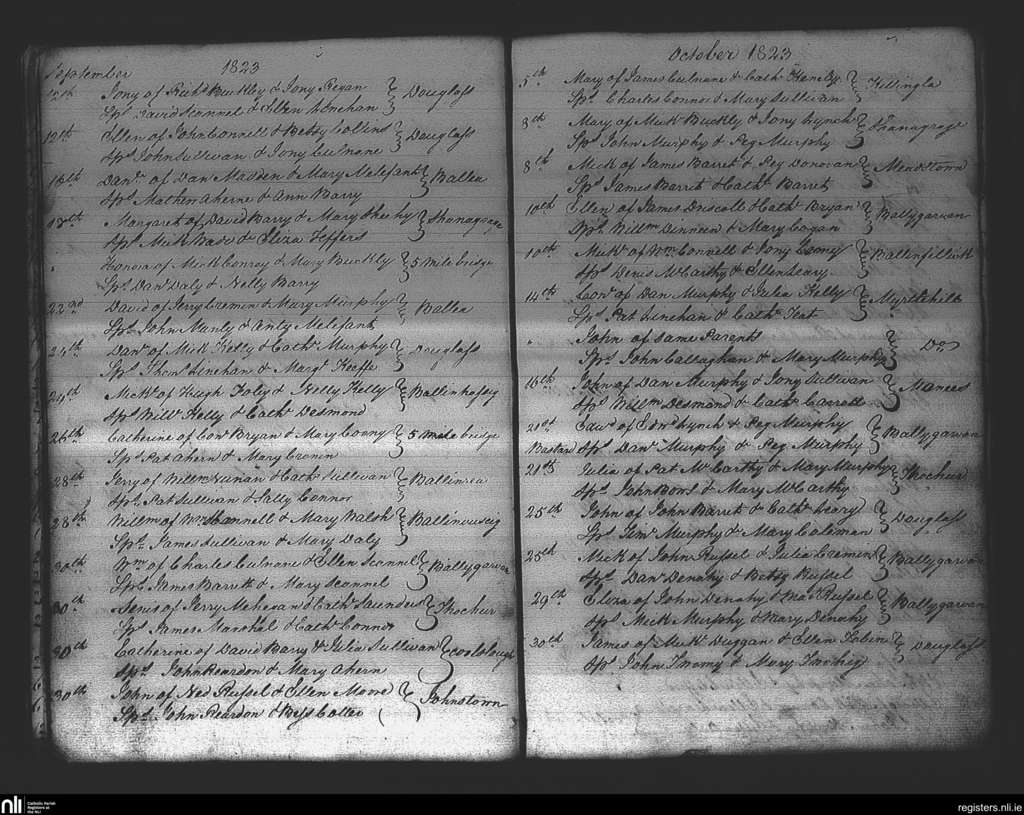 September 1823
12th Jony of Richd Buckley & Jony Regan } Douglass
Sps. David Sconnel & Ellen Linehan
12th Ellen of John Connell & Betsy Collins } Douglass
Sps. John Sullivan & Jony Culnane
16th Danl. of Dan Madden & Mary Melefant } Ballea
Sps. Mathew Aherne & Ann Barry
18th Margaret of David Barry & Mary Sheehy } Shanagrage
Sps. Mick Bade & Eliza Jeffers
" Honora of Mick Conroy & Mary Buckly } 5 mile bridge
Sps. Danl. Daly & Nelly Barry
22nd David of Jerry Cremin & Mary Murphy } Ballea
Sps. John Manly & Anty Melefant
24th Danl. of Mick Kelly & Cathe. Murphy } Douglass
Sps. Thos. Linehan & Margt. Keaffe
24th Mick. of Hugh Foly & Nelly Kelly } Ballinhasig
Sps. Willm. Kelly & Cathe. Desmond
26th Catherine of Con. Bryan & Mary Coony } 5 mile bridge
Sps. Pat Ahern & Mary Cronin
28th Jerry of Willm. & Cathe. Sullivan } Ballinrea
Sps. Pat Sullivan & Sally Connor
28th Willm. of & Mary Walsh } Ballinvuscig
Sps. James Sullivan & Mary Daly
30th Wm. of Charles Culnane & Ellen Sconnel } Ballygarvan
Sps. James Barrett & Mary Sconnel
30th Denis of Jerry Mehegan & Cathe. Saunders } Thochur
Sps. James Marshal & Cathe. Connor
30th Catherine of David Barry & Julia Sullivan }
Sps. John Reardon & Mary Ahern
30th John of Ned Russel & Ellen Mame } Johnstown
Sps. John Reardon & Bess Cotter
October 1823
5th Mary of James Culnane & Cathe. Henely } Killingla
Sps. Charles Connor & Mary Sullivan
8th Mary of Mick Buckly & Jony Lynch } Shanagrage
Sps. John Murphy & Peg Murphy
8th Mick of James Barret & Peg Donovan } Meadstown
Sps. James Barret & Cathe. Barret
10th Ellen of James Driscoll & Cathe. Bryan } Ballygarvan
Sps. Willm. Dinneen & Mary Cogan
10th Mick. of Wm. Connell & Jony } Ballinfellick
Sps. Denis McCarthy & Ellen Leary
14th Con. of Dan Murphy & Julia Kelly } Myrtlehill
Sps. Pat Linehan & Cathe.
" John of same Parents } Do.
Sps. John Callaghan & Mary Murphy
16th John of Dan Murphy & Jony Sullivan } Manees
Sps. Willm. Desmond & Cathe. Carroll
21st Edwd. of Edwd. Lynch & Peg Murphy } Ballygarvan
Bastard Sps. Danl. Murphy & Peg Murphy
21th Julia of Pat McCarthy & Mary Murphy } Thochur
Sps. John Bowl & Mary McCarthy
25th John of John Barrett & Cathe. Leary } Douglass
Sps. Timy. Murphy & Mary Coleman
25th Mick of John Russel & Julia Cremin } Ballygarvan
Sps. Danl. Denahy & Betsy Russel
29th Eliza of John Denahy & Russel } Ballygarvan
Sps. Mick Murphy & Mary Denahy
30th James of Mick. Duggan & Ellen Tobin } Douglass
Sps. John Twomy & Mary Twohig
nli
Catholic Parish
Registers at
the NLI
registers.nli.ie